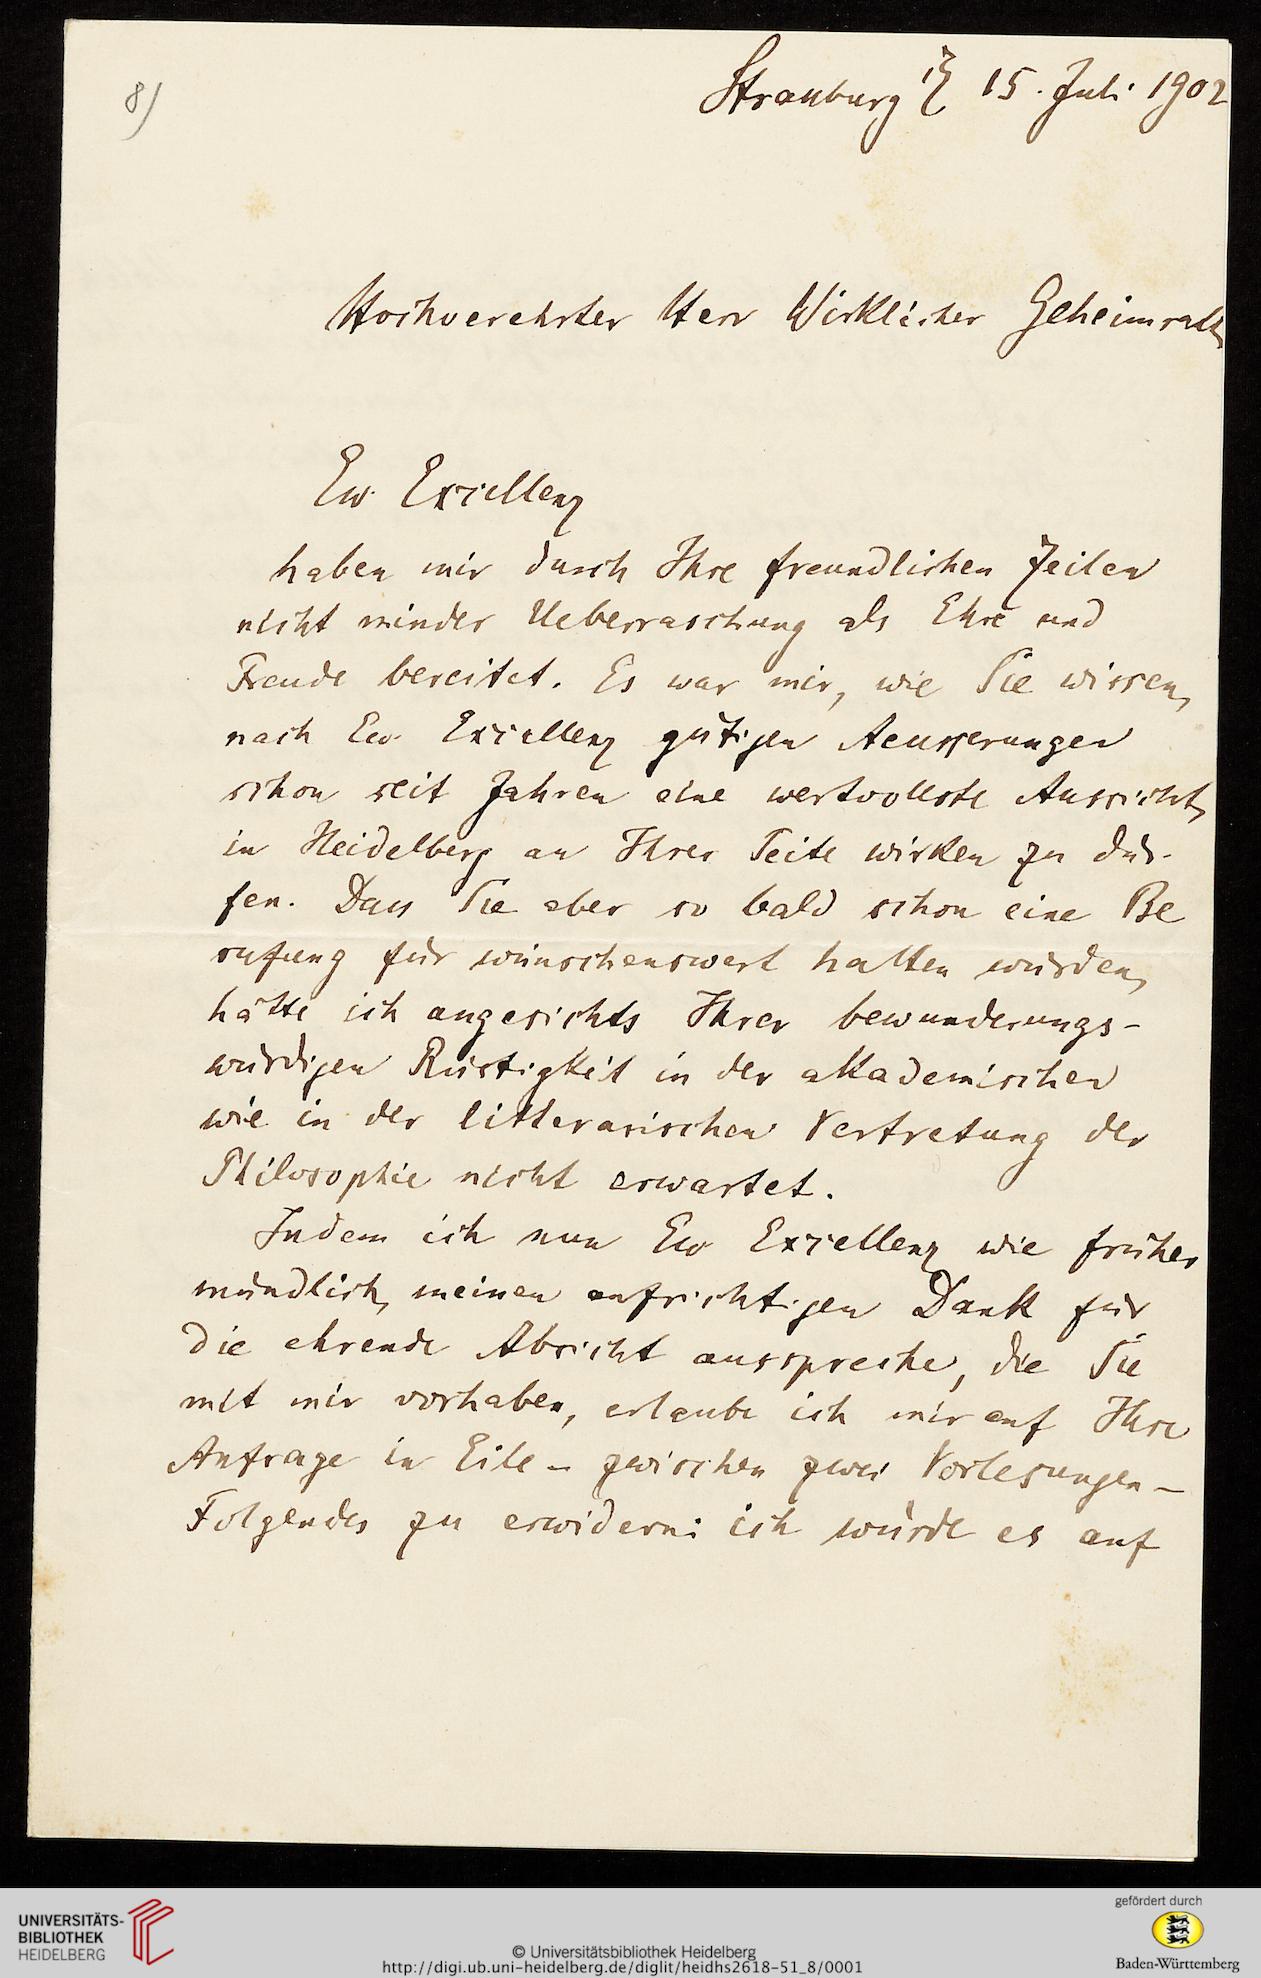 8)
Strassburg i/E 15. Juli 1902
Hochverehrter Herr Wirklicher Geheimrath,
Ew. Excellenz
haben mir durch Ihre freundlichen Zeilen
nicht minder Ueberraschung als Ehre und
Freude bereitet. Es war mir, wie Sie wissen,
nach Ew. Excellenz gütigen Aeusserungen
schon seit Jahren eine wertvollste Aussicht,
in Heidelberg an Ihrer Seite wirken zu dür-
fen. Dass Sie aber so bald schon eine Be
rufung für wünschenswert halten würden,
hätte ich angesichts Ihrer bewunderungs-
würdigen Rüstigkeit in der akademischen
wie in der litterarischen Vertretung der
Philosophie nicht erwartet.
Indem ich nun Ew Excellenz wie früher
mündlich, meinen aufrichtigen Dank für
die ehrende Absicht ausspreche, die Sie
mit mir vorhaben, erlaube ich mir auf Ihre
Anfrage in Eile – zwischen zwei Vorlesungen –
Folgendes zu erwidern: ich würde es auf
UNIVERSITÄTS-
BIBLIOTHEK
HEIDELBERG
© Universitätsbibliothek Heidelberg
http://digi.ub.uni-heidelberg.de/diglit/heidhs2618-51_8/0001
gefördert durch
Baden-Württemberg